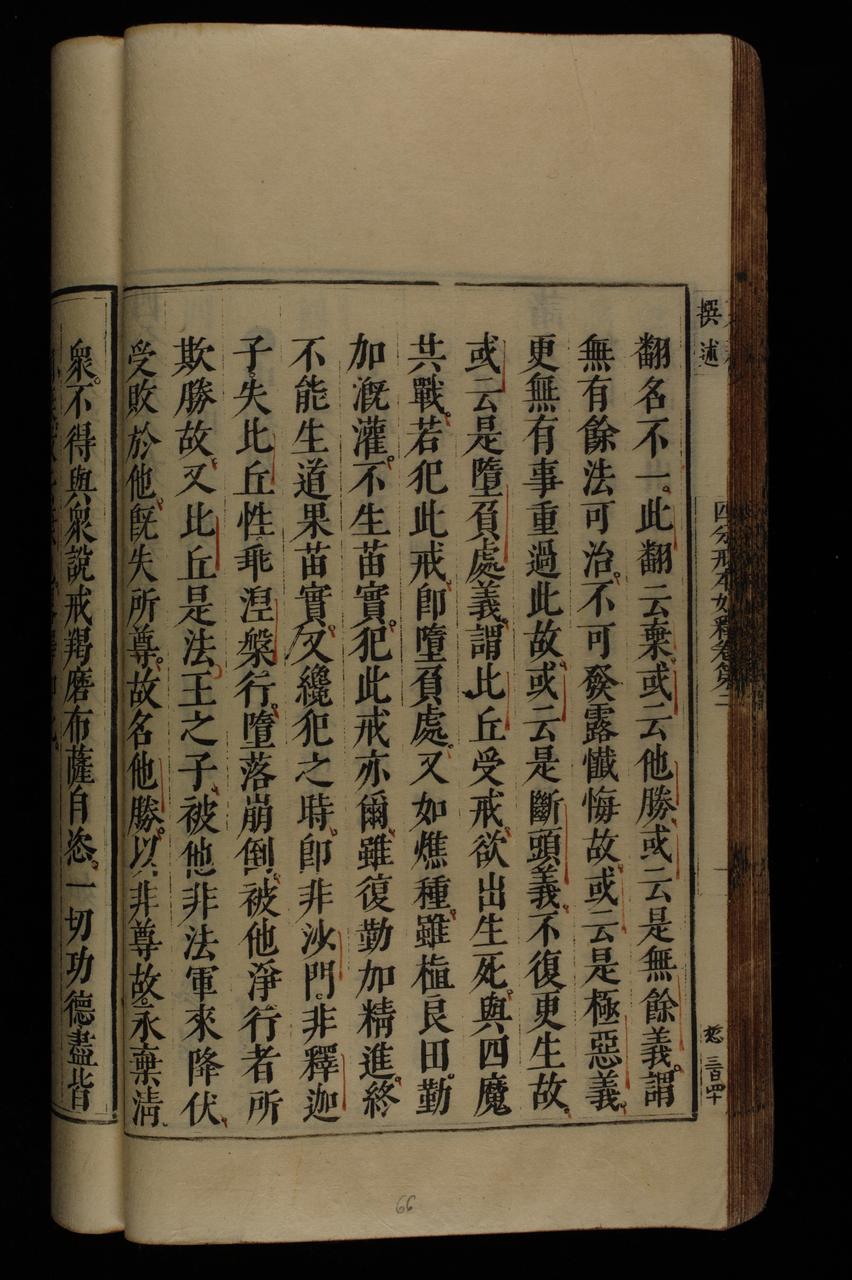 撰述
四分戒本如釋卷第二
三百四十
翻名不一。此翻云棄。或云他勝。或云是無餘義。謂
無有餘法可治。不可發露懺悔故。或云是極惡義。
更無有事重過此故。或云是斷頭義。不復更生故。
或云是墮負處義。謂比丘受戒。欲出生死。與四魔
共戰。若犯此戒。即墮負處。又如燋種。雖植良田。勤
加溉灌。不生苗實。犯此戒亦爾。雖復勤加精進。終
不能生道果苗實。又纔犯之時。即非沙門。非釋迦
子。失比丘性。乖涅槃行。墮落崩倒。被他淨行者所
欺勝故。又比丘是法王之子。被他非法軍來降伏。
受敗於他。既失所尊。故名他勝。以非尊故。永棄清
衆。不得與衆說戒羯磨布薩自恣。一切功德盡皆
66